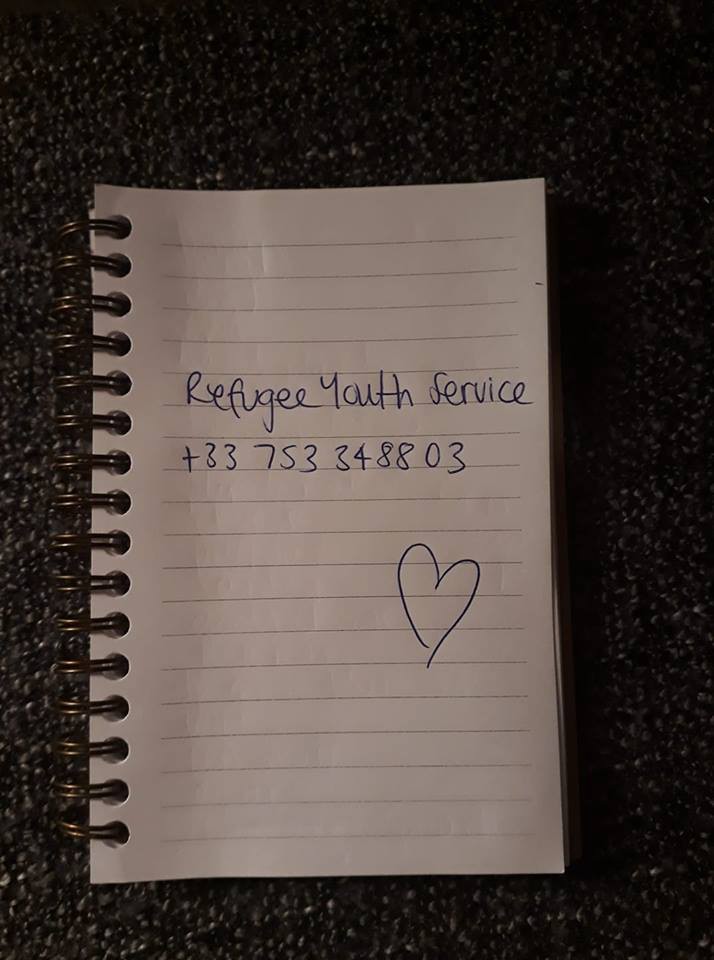 Refugee Youth Service
+33 753 348803